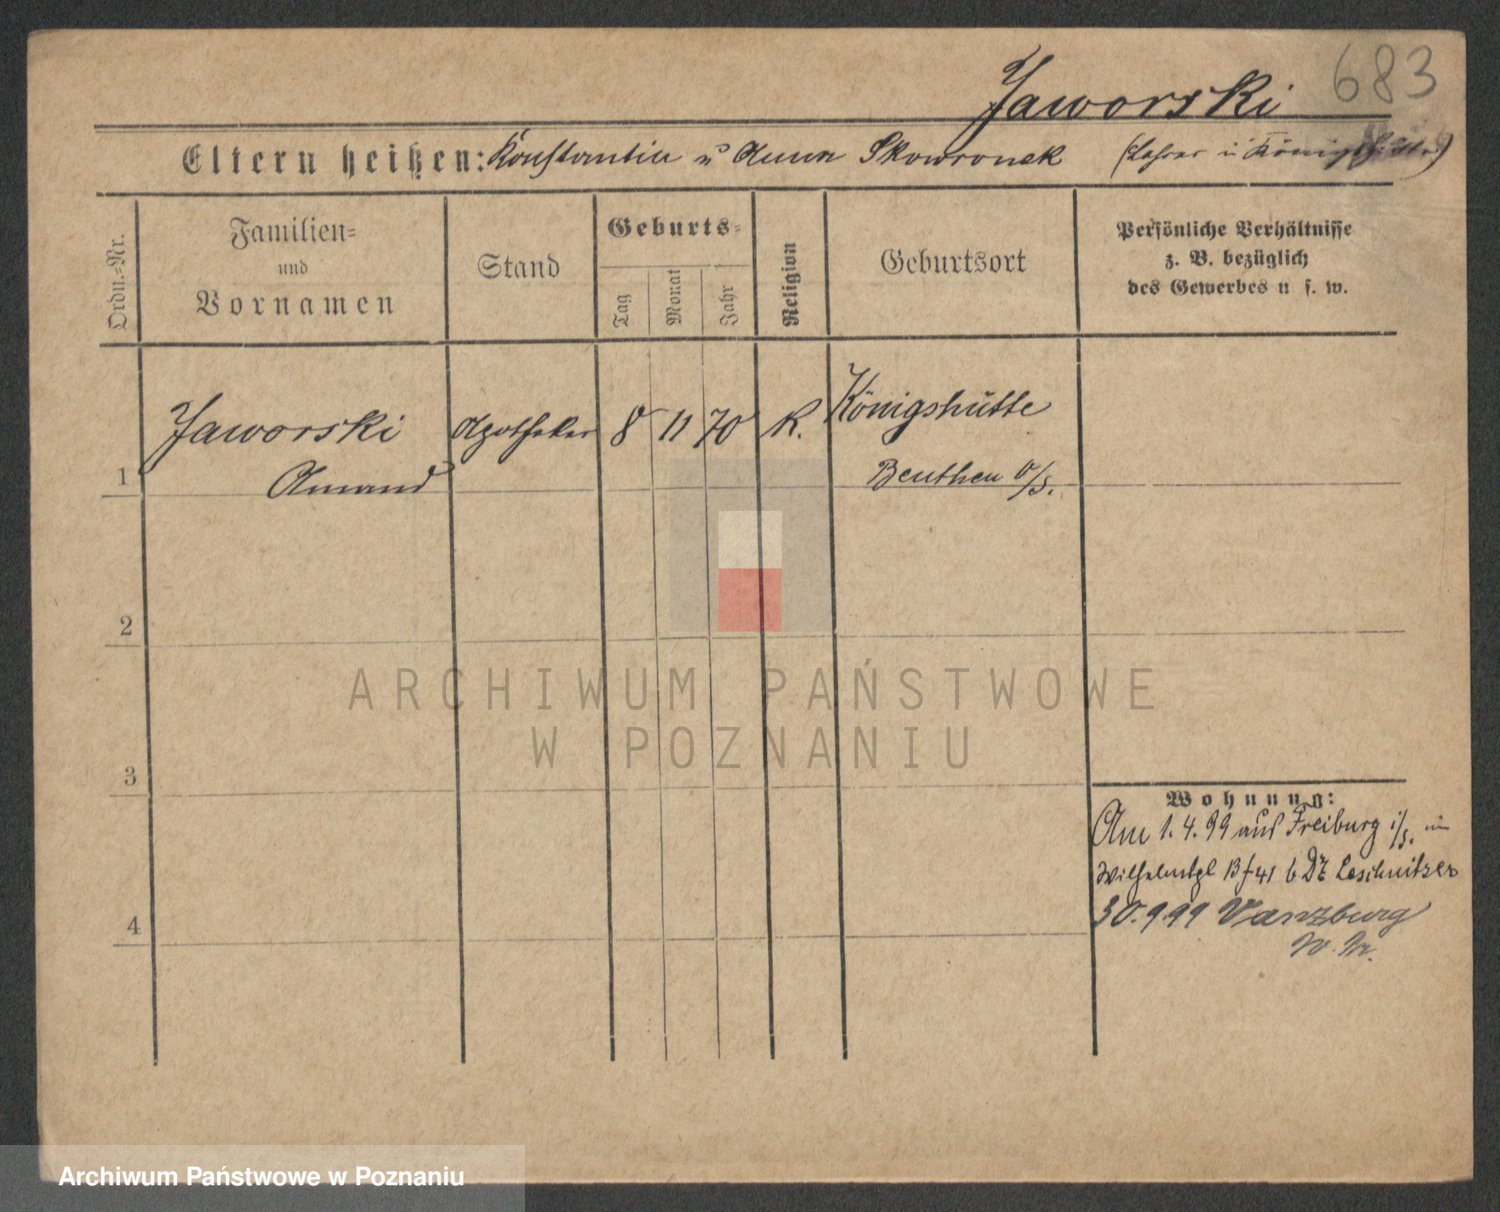 683
Jaworski
Eltern heißen: Konstantin u Anna Skowronek (Lehrer i Königshütte)
Ordn.=Nr.
Familien=
und
Vornamen
Stand
Geburts=
Tag
Monat
Jahr
Religion
Geburtsort
Persönliche Verhältnisse
z. B. bezüglich
des Gewerbes u s. w.
1
Jaworski
Amand
Apotheker
8
11
70
K.
Königshütte
Beuthen O/S.
2
3
4
Wohnung:
Am 1. 4. 99 aus Freiburg i/S. in
Wilhelmspl 13 b Leschnitzer
30. 9 99 Vanzburg
W. Pr.
ARCHIWUM PAŃSTWOWE
W POZNANIU
Archiwum Państwowe w Poznaniu